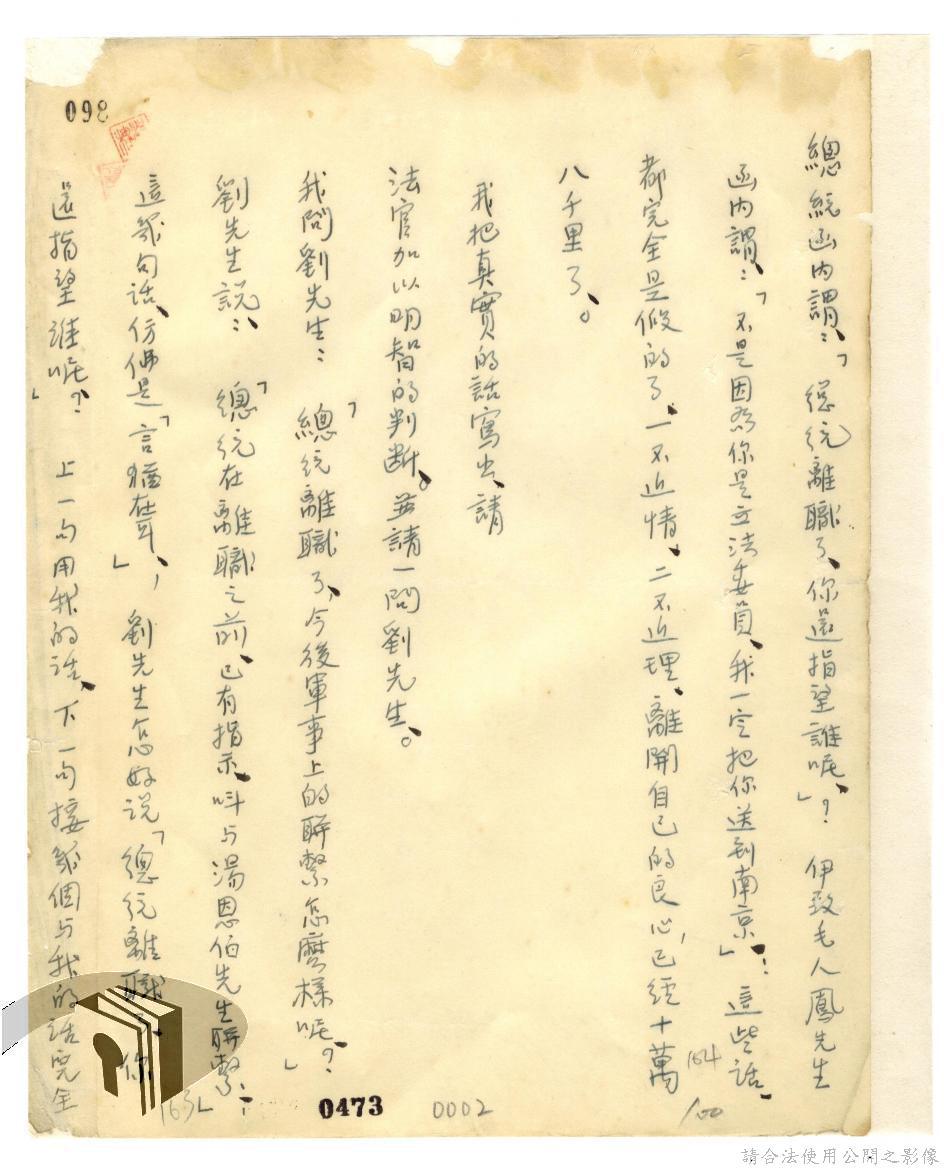 098
總統函内謂:「總統離職了、你還指望誰呢、」?伊致毛人鳳先生
函内謂:「不是因為你是立法委員、我一定把你送到南京、」!這些話、
都完全是假的了、一不近情、二不近理、離開自己的良心,已經十萬
八千里了。
我把真實的話寫出、請
法官加以明智的判断。並請一問劉先生。
我問劉先生:「總統離職了,今後軍事上的聯繫怎麼樣呢?」
劉先生説:「總統在離職之前、已有指示、叫与湯恩伯先生聯繫、」
這幾句話、仿佛是「言猶在耳」,劉先生怎好说「總統離職了、你
還指望誰呢?」上一句用我的話、下一句接幾個与我的話完全
164
163
100
0473
0002
請合法使用公開之影像